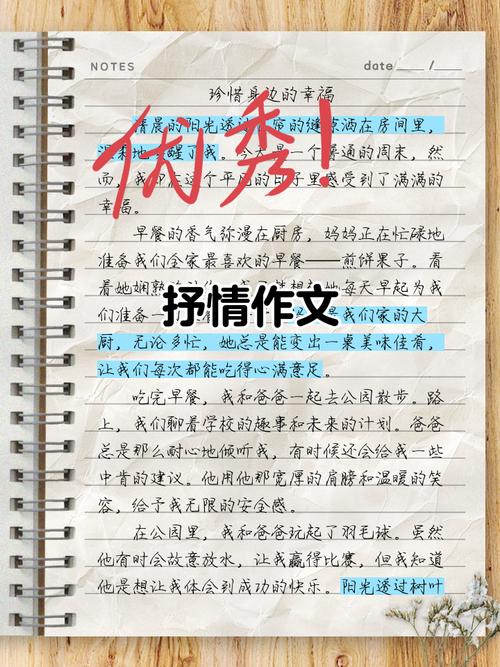 NOTES
date ____ / ____
珍惜身边的幸福
优秀!
清晨的阳光透过窗帘的缝隙洒在房间里，
温柔地唤醒了我。今天是一个普通的周末，然
而，我却在这个平凡的日子里感受到了满满的
幸福。
早餐的香气弥漫在厨房，妈妈正在忙碌地
准备我们全家最喜欢的早餐——煎饼果子。看
着她娴熟的 她每天早起为我
抒情作文
们准备一 是我们家的大
厨，无论多忙，她总是能变出一桌美味佳肴，
让我们每次都能吃得心满意足。
吃完早餐，我和爸爸一起去公园散步。路
上，我们聊着学校的趣事和未来的计划。爸爸
总是那么耐心地倾听我，有时候还会给我一些
中肯的建议。他用他那宽厚的肩膀和温暖的笑
容，给予我无限的安全感。
在公园里，我和爸爸玩起了羽毛球。虽然
他有时会故意放水，让我赢得比赛，但我知道
他是想让我体会到成功的快乐。阳光透过树叶